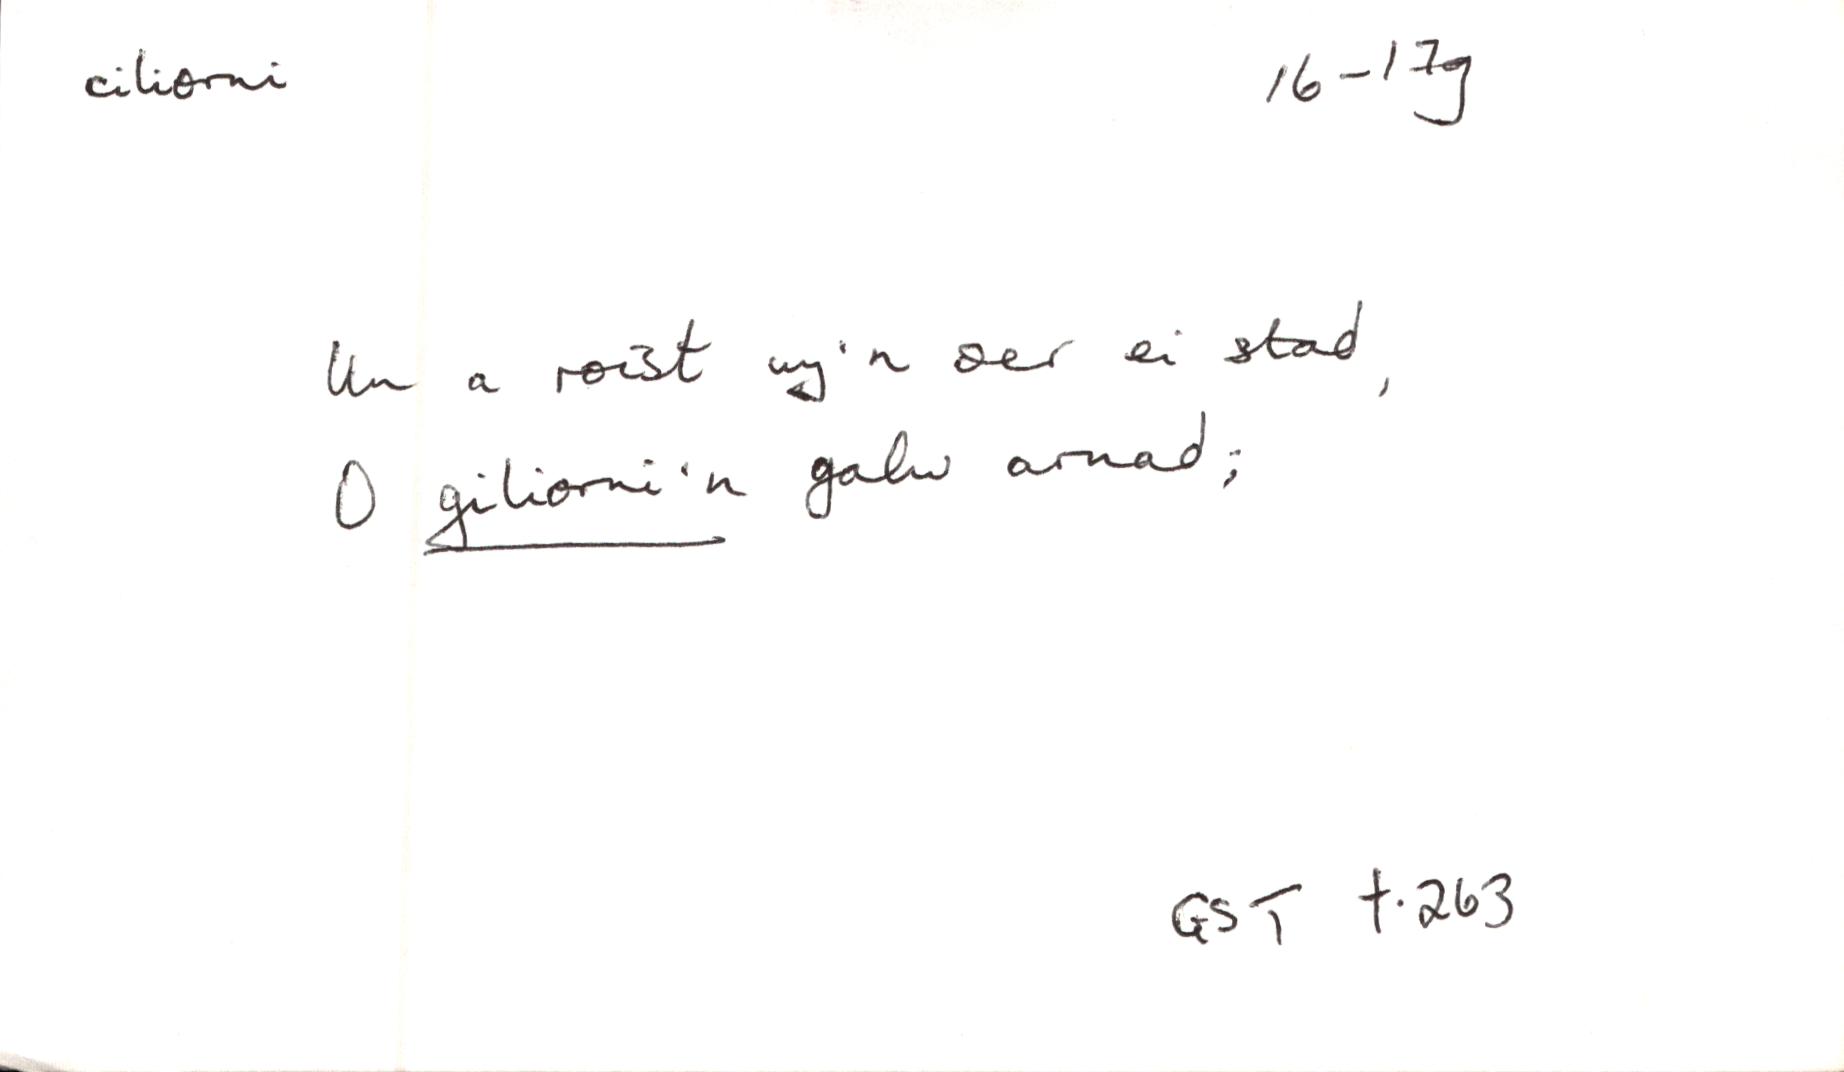 ciliorni 16-17g
Un a roist wy'n oer ei stad,
O giliorni'n galw arnad;
GST t.263